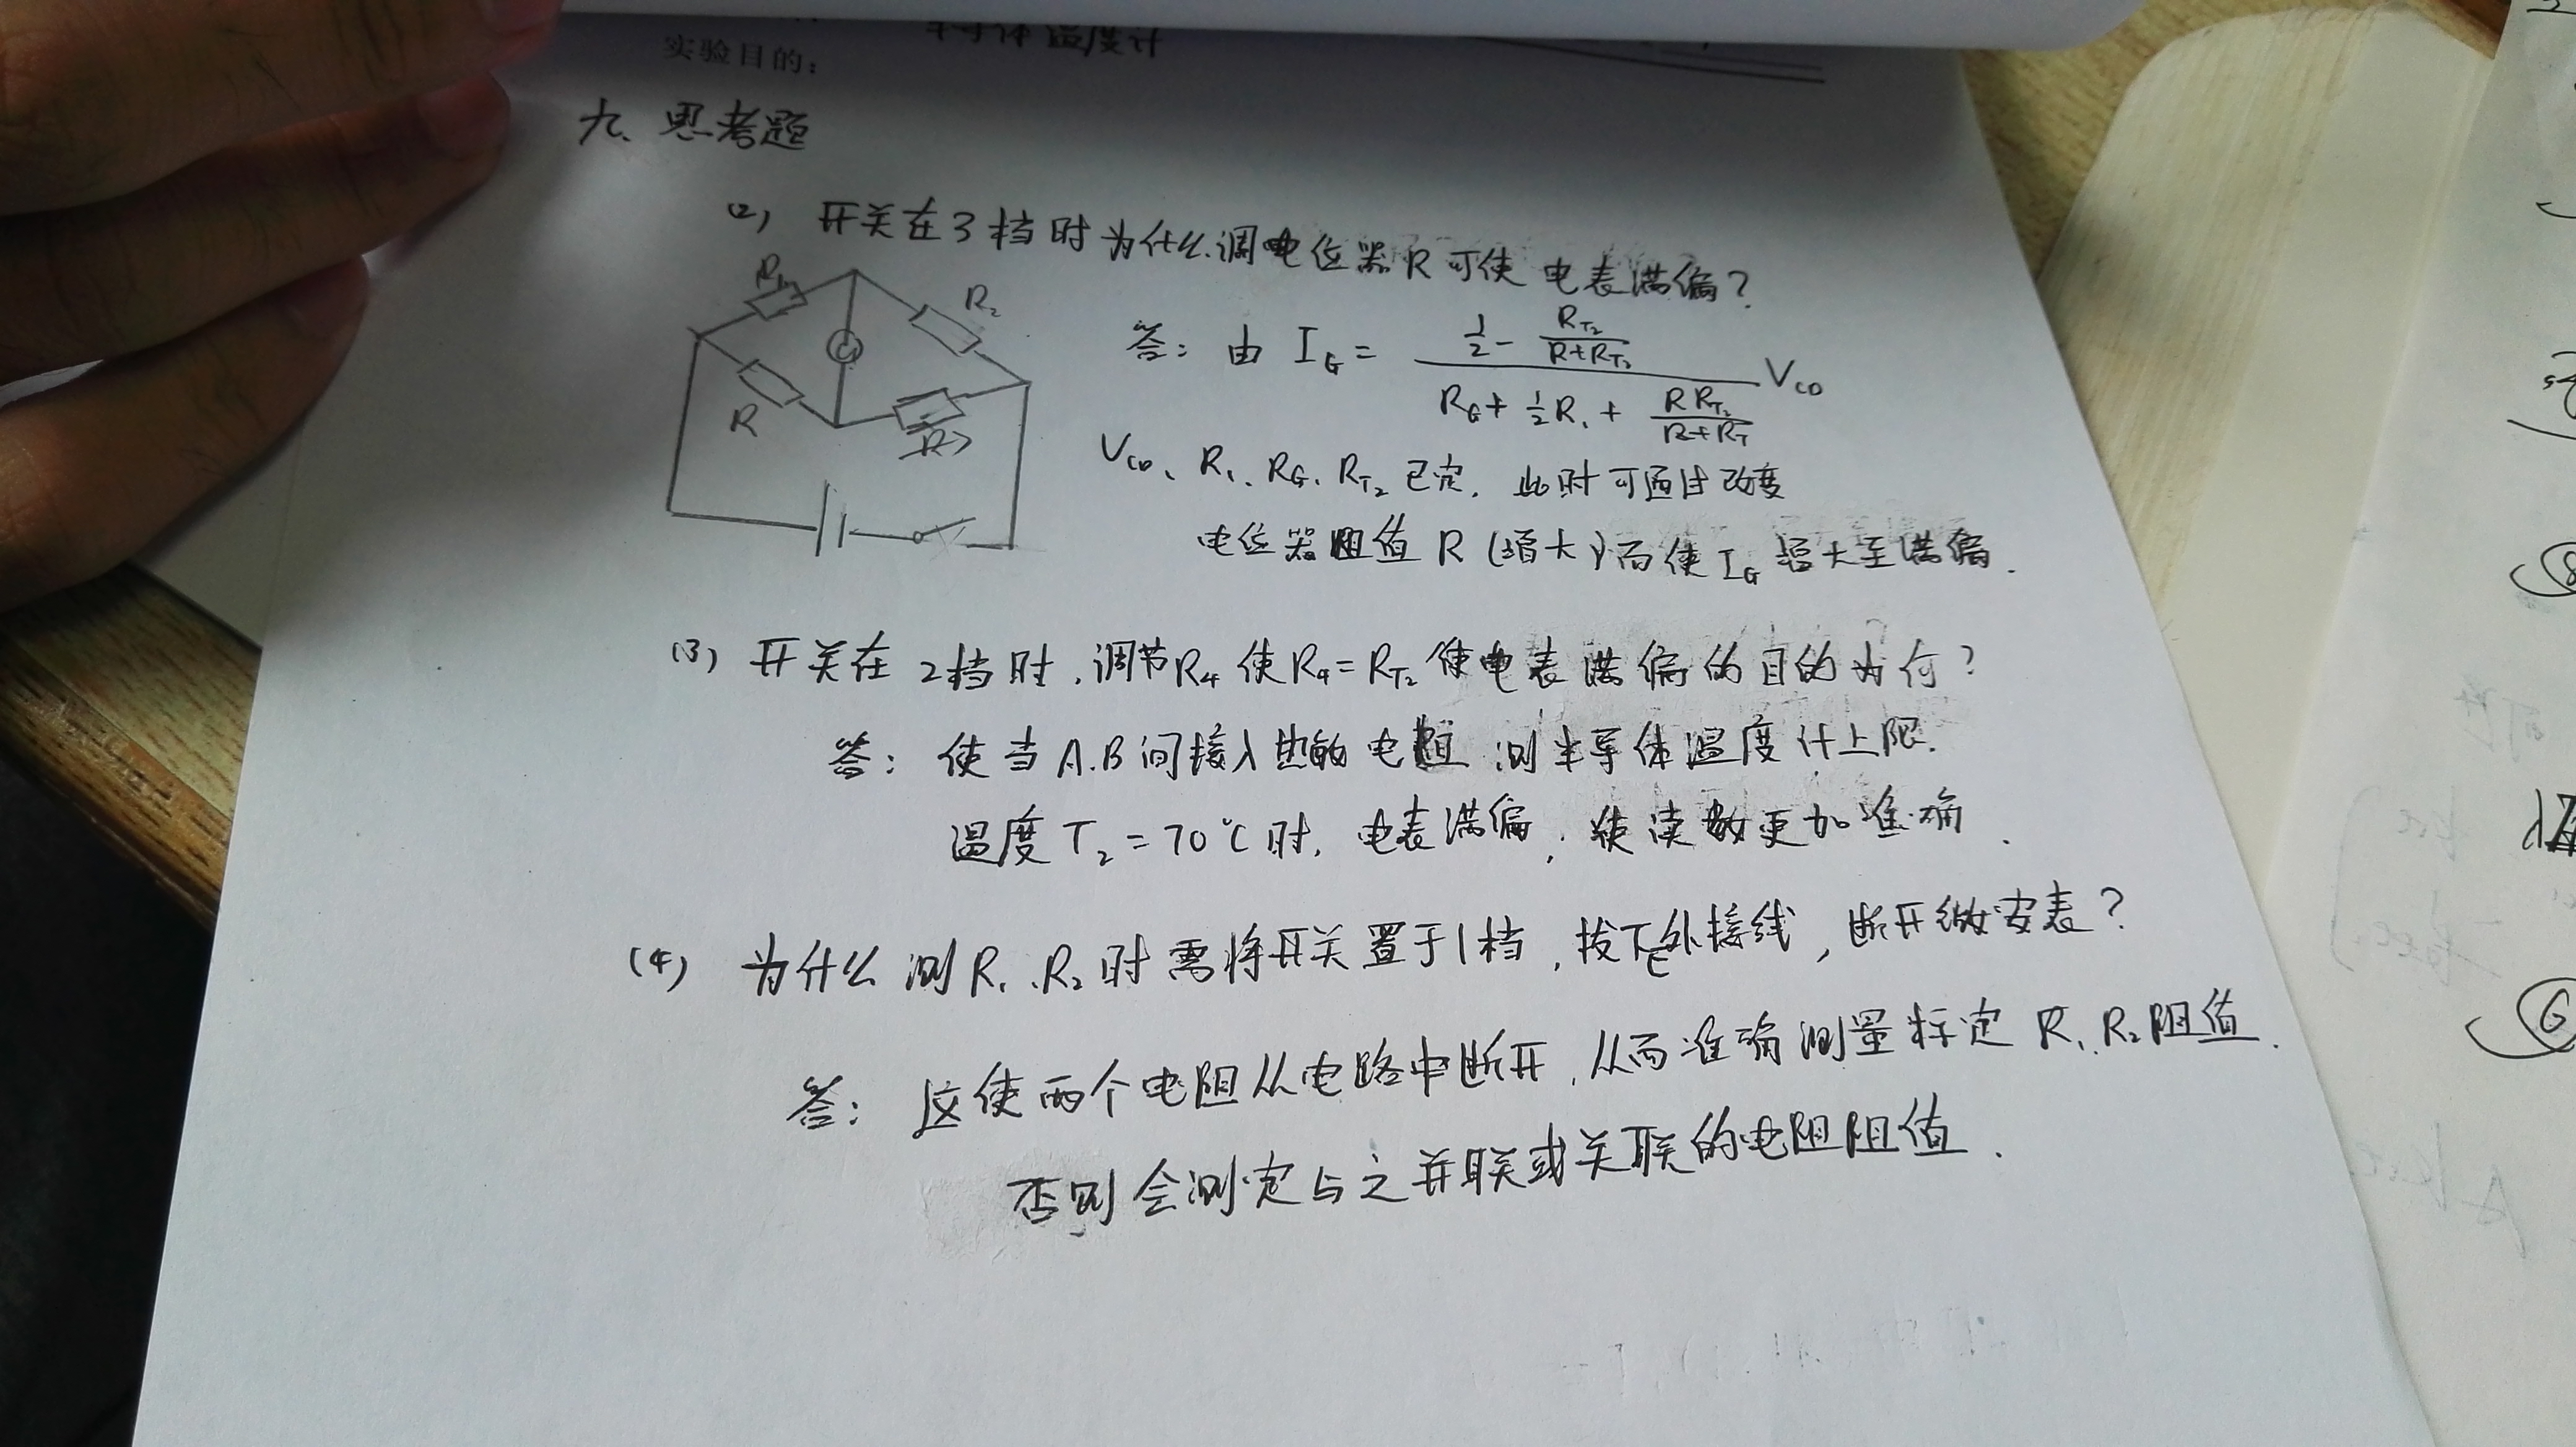 半导体温度计
实验目的:
九、思考题
(2) 开关在3档时为什么调电位器R可使电表满偏?
R₁
R₂
G
R
答: 由 I_G = (1/2 - R_T₂/(R+R_T₂)) / (R_G + 1/2 R₁ + R R_T₂/(R+R_T)) V_CD
V_CD、R₁、R_G、R_T₂已定, 此时可通过改变
电位器阻值R(增大)而使I_G增大至满偏.
(3) 开关在2档时,调节R₄使R₄=R_T₂使电表满偏的目的为何?
答: 使当A.B间接入热敏电阻测半导体温度计上限.
温度T₂=70℃时, 电表满偏, 使读数更加准确.
(4) 为什么测R₁、R₂时需将开关置于1档,拔下E外接线,断开微安表?
答: 这使两个电阻从电路中断开,从而准确测量标定R₁、R₂阻值.
否则会测定与之并联或关联的电阻阻值.
G